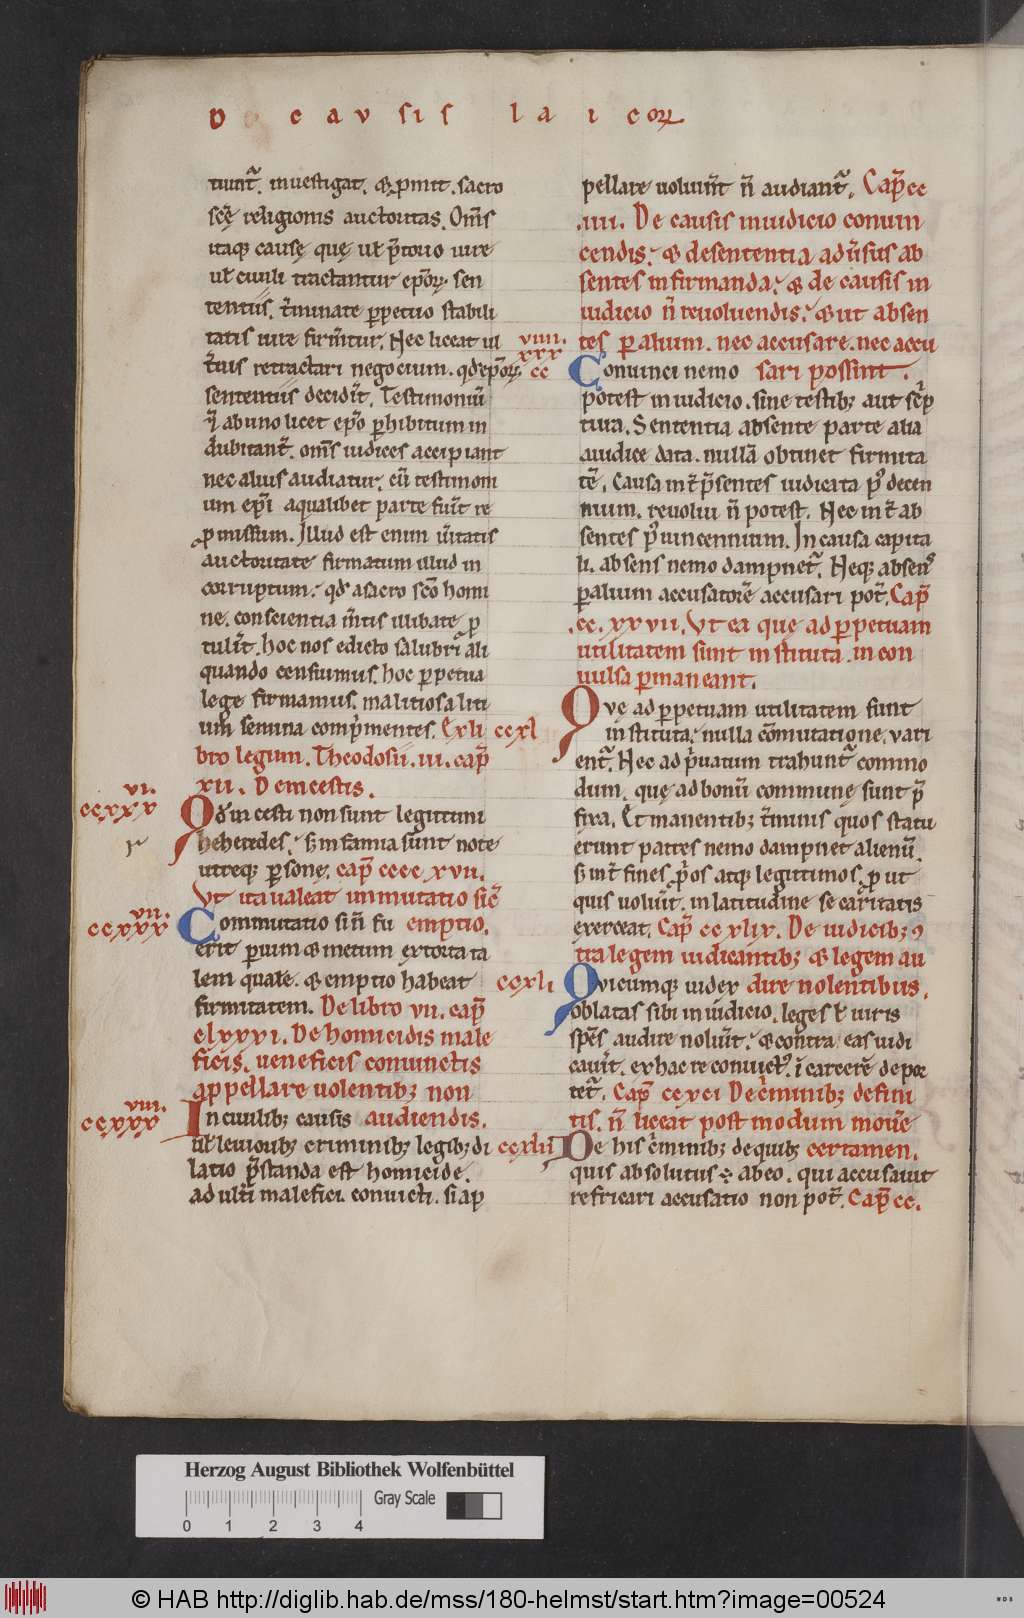 D e c a v s i s l a i c oꝝ
tiunt᷑. inuestigat. ⁊ ꝓmit. sacro
scē religionis auctoritas. Om̄s
itaq; causę quę uł p̄torio iure
uł ciuili tractantur ep̄oꝝ sen
tentiis. t̄minate ꝑpetuo stabili
tatis iure firm̄tur. Nec liceat ul
t̄ius retractari negocium. qd̓ ep̄oꝝ
sententiis decider̄t. Testimoniū
ab uno licet ep̄o ꝑhibitum in
dubitant̓. om̄s iudices accipiant
nec alius audiatur. cū testimoni
um ep̄i a qualibet parte fuer̄t re
ꝓmissum. Illud est enim ūitatis
auctoritate firmatum illud in
corruptum. qd̓ a sacro scō homi
ne. conscientia m̄tis illibate ꝓ
tulit̄. hoc nos edicto salubri ali
quando censuimus. hoc ꝑpetua
lege firmamus. malitiosa liti
um semina comp̄mentes. Ex li
bro legum. Theodosii. iii. cap̄
xii. De incestis.
Qd̓ incesti non sunt legitimi
heheredes. s; infamia sunt note
utreq; ꝑsonę. cap̄ cccc xvii.
Vt ita ualeat inmutatio sic̄
Commutatio si n̄ fu emptio.
erit ꝑ uim ⁊ metum extorta ta
lem quale. ⁊ emptio habeat
firmitatem. De libro vii. cap̄
clxxxi. De homicidis male
ficis. ueneficis conuinctis
appellare uolentib; non
In ciuilib; causis audiendis.
uł leuiorib; criminib; legib; di
latio p̄standa est homicide.
adult̄i malefici. conuicti. si ap
vi.
ccxxx
r
vii.
ccxxx
viii.
ccxxx
viiii.
xxx
cc
ccxl
ccxli
ccxlii
pellare uoluer̄int n̄ audiant᷑. Cap̄ cc
.iiii. De causis in iudicio conuin
cendis. ⁊ de sententia adūsus ab
sentes infirmanda. ⁊ de causis in
iudicio n̄ reuoluendis. ⁊ ut absen
tes ꝑ alium. nec accusare. nec accu
Conuinci nemo sari possint.
potest in iudicio. sine testib; aut sc̄p
tura. Sententia absente parte alia
a iudice data. nullā obtinet firmita
tē. Causa int̄ p̄sentes iudicata pꝰ decen
nium. reuolui n̄ potest. Nec int̄ ab
sentes pꝰ uincennium. In causa capita
li. absens nemo dampnet᷑. Neq; absenꝰ
ꝑ alium accusatorē accusari pot̄. Cap̄
.cc. xxvii. Vt ea quę ad ꝑpetuam
utilitatem sunt instituta. in con
uulsa ꝑmaneant.
Qvę ad ꝑpetuam utilitatem sunt
instituta. nulla cōmutatione. vari
ent᷑. Nec ad p̄uatum trahunt᷑ commo
dum. quę ad bonū communę sunt p̄
fixa. Et manentib; t̄minis quos statu
erunt patres nemo dampnet alienū.
s; int̄ fines ꝓp̄os atq; legittimos. ꝓ ut
quis uoluit̄. in latitudine se caritatis
exerceat. Cap̄ cc xlix. De iudicib; 9
tra legem iudicantib; ⁊ legem au
Qvicumq; iudex dire nolentibus.
oblatas sibi in iudicio. leges ł iuris
spēs audire noluit̄. ⁊ contra eas iudi
cauit̄. ex hac re conuictꝰ. ī carcerē depor
tet᷑. Cap̄ cc xci De c̄minib; defini
tis. n̄ liceat post modum mouē
De his c̄minib; de quib; certamen.
quis absolutus ÷ ab eo. qui accusauit
refricari accusatio non pot̄. Cap̄ cc.
Herzog August Bibliothek Wolfenbüttel
Gray Scale
0 1 2 3 4
© HAB http://diglib.hab.de/mss/180-helmst/start.htm?image=00524